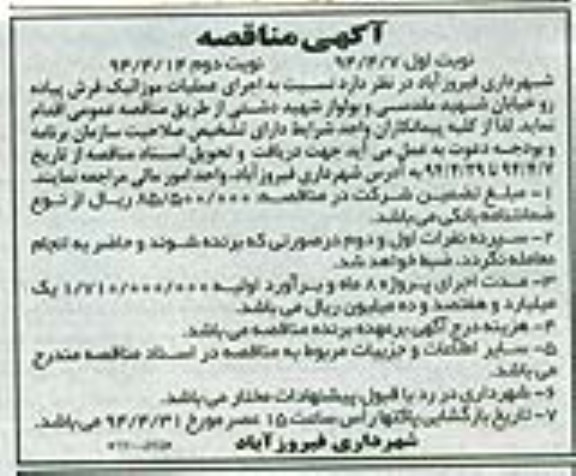 آگهی مناقصه
نوبت اول ۹۴/۴/۷ نوبت دوم ۹۴/۴/۱۴
شهرداری فیروزآباد در نظر دارد نسبت به اجرای عملیات موزائیک فرش پیاده
رو خیابان شهید مقدسی و بولوار شهید دشتی از طریق مناقصه عمومی اقدام
نماید. لذا از کلیه پیمانکاران واجد شرایط دارای تشخیص صلاحیت سازمان برنامه
و بودجه دعوت به عمل می آید جهت دریافت و تحویل اسناد مناقصه از تاریخ
۹۴/۴/۷ تا ۹۴/۴/۲۹ به آدرس شهرداری فیروزآباد، واحد امور مالی مراجعه نمایند.
۱- مبلغ تضمین شرکت در مناقصه: ۸۵/۵۰۰/۰۰۰ ریال از نوع
ضمانتنامه بانکی می باشد.
۲- سپرده نفرات اول و دوم در صورتی که برنده شوند و حاضر به انجام
معامله نگردند، ضبط خواهد شد.
۳- مدت اجرای پروژه ۸ ماه و برآورد اولیه ۱/۷۱۰/۰۰۰/۰۰۰ یک
میلیارد و هفتصد و ده میلیون ریال می باشد.
۴- هزینه درج آگهی برعهده برنده مناقصه می باشد.
۵- سایر اطلاعات و جزییات مربوط به مناقصه در اسناد مناقصه مندرج
می باشد.
۶- شهرداری در رد یا قبول پیشنهادات مختار می باشد.
۷- تاریخ بازگشایی پاکتها رأس ساعت ۱۵ عصر مورخ ۹۴/۴/۳۱ می باشد.
شهرداری فیروزآباد